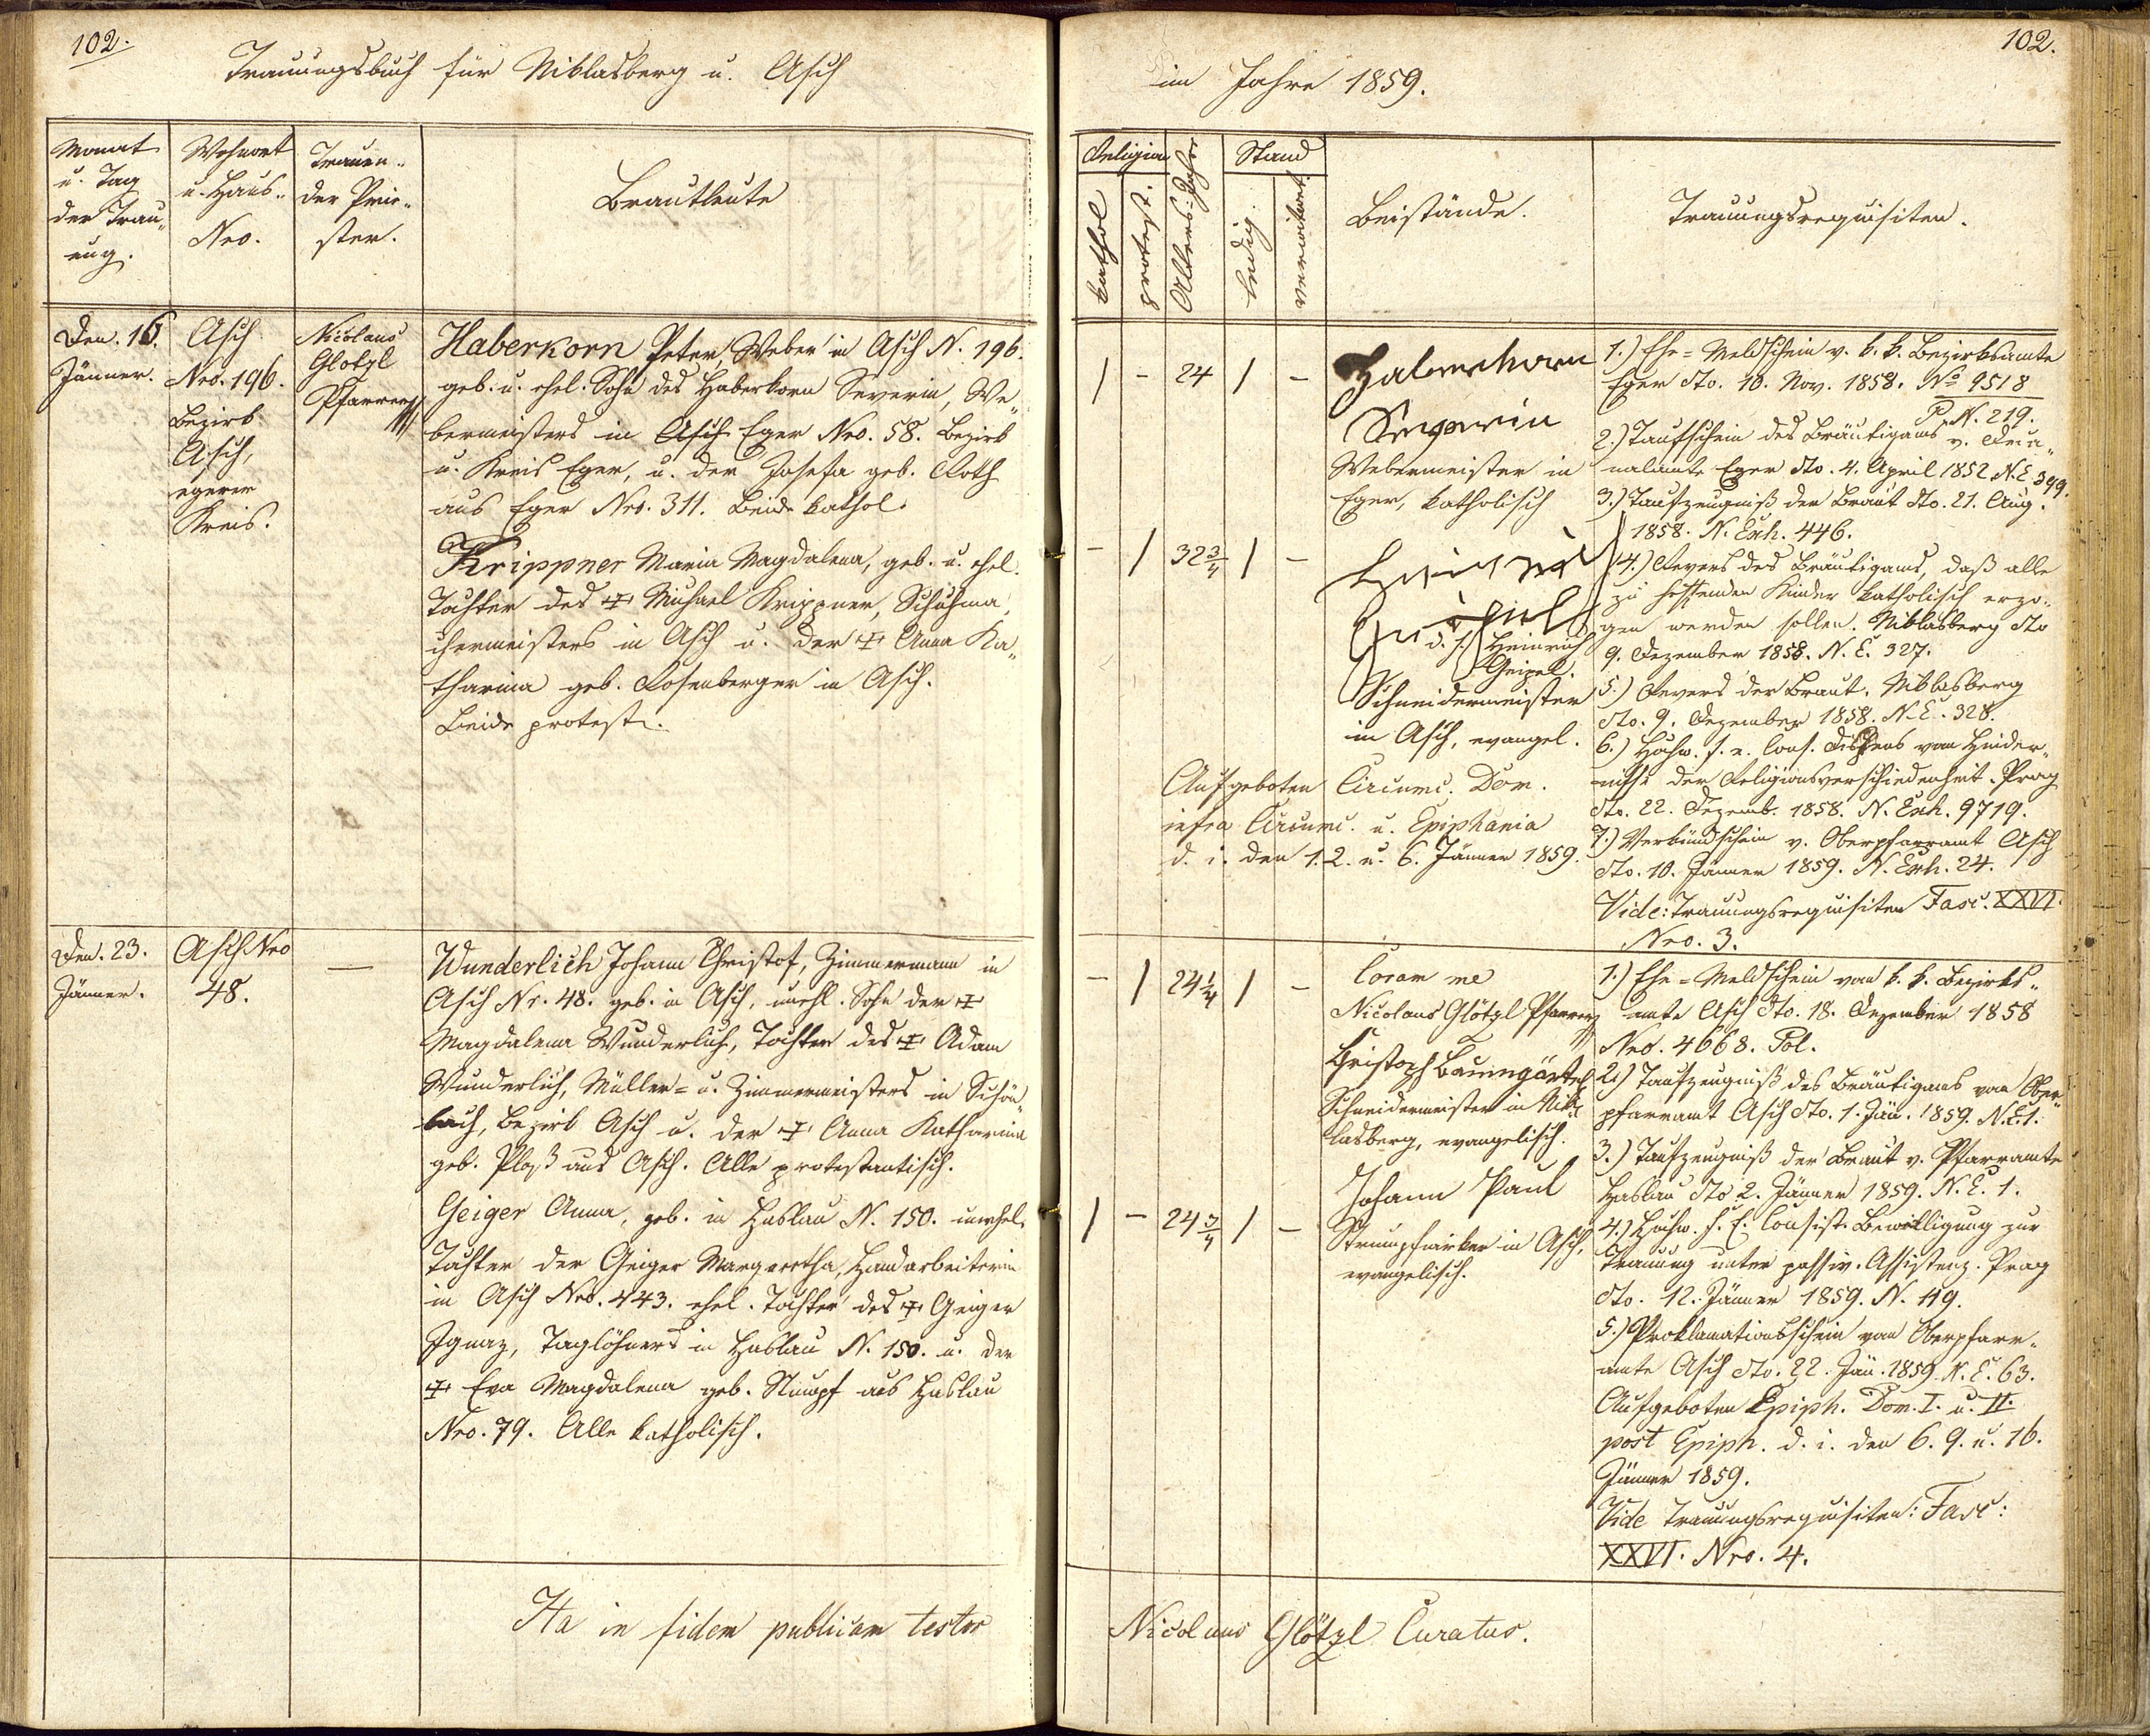 102.
Trauungsbuch für Niklasberg u. Asch
Monat
u. Tag
der Trau„
ung.
Wohnort
u. Haus„
Nro.
Trauen„
der Prie„
ster.
Brautleute
Den. 16.
Jänner.
Asch
Nro. 196.
Bezirk
Asch,
egerer
Kreis.
Nicolaus
Glötzl
Pfarrer
Haberkorn Peter, Weber in Asch N. 196.
geb. u. ehel. Sohn des Haberkorn Severin, We„
bermeisters in Asch Eger Nro. 58. Bezirk
u. Kreis Eger, u. der Josefa geb. Roth
aus Eger Nro. 311. Beide kathol.
Krippner Maria Magdalena, geb. u. ehel.
Tochter des Michael Krippner, Schuhma„
chermeisters in Asch u. der Anna Ka„
tharina geb. Rosenberger in Asch.
Beide protest.
Den. 23.
Jänner.
Asch Nro
48.
—
Wunderlich Johann Christof, Zimmermann in
Asch Nr. 48. geb. in Asch, unehl. Sohn der
Magdalena Wunderlich, Tochter des Adam
Wunderlich, Müller= u. Zimmermeisters in Schön„
bach, Bezirk Asch u. der Anna Katharina
geb. Ploß aus Asch. Alle protestantisch.
Geiger Anna, geb. in Haslau N. 150. unehel.
Tochter der Geiger Margaretha, Handarbeiterin
in Asch Nro. 443. ehel. Tochter des Geiger
Ignaz, Taglöhners in Haslau N. 150. u. der
Eva Magdalena geb. Stumpf aus Haslau
Nro. 79. Alle katholisch.
Ita in fidem publicam testor
102.
im Jahre 1859.
Religion
kathol
protest.
Alters=Jahre
Stand
ledig.
verwitwet.
Beistände.
Trauungsrequisiten.
| - 24 | -
Severin
Webermeister in
Eger, katholisch
- | 32 3/4 | -
d. i. Heinrich
Geipel.
Schneidermeister
in Asch, evangel.
Aufgeboten Circumc. Dom.
infra Circumc. u. Epiphania
d. i. den 1. 2. u. 6. Jänner 1859.
1.) Ehe=Meldschein v. k. k. Bezirksamte
Eger dto. 10. Nov. 1858. No 9518
P. N. 219.
2.) Taufschein des Bräutigams v.
Eger dto. 4. April 1852 N. E. 399.
3.) Taufzeugniß der Braut dto. 21. Aug.
1858. N. Exh. 446.
4.) Revers des Bräutigams, daß alle
zu hoffenden Kinder katholisch erzo„
gen werden sollen. Niklasberg dto
9. Dezember 1858. N. E. 327.
5.) Revers der Braut. Niklasberg
dto. 9. Dezember 1858. N. E. 328.
6.) Hochw. f. e. Cons. Dispens vom Hinder„
nisse der Religionsverschiedenheit. Prag
dto. 22. Dezemb. 1858. N. Exh. 9719.
7.) Verkündschein v. Oberpfarramt Asch
dto. 10. Jänner 1859. N. Exh. 24.
Vide: Trauungsrequisiten Fasc. XXVI.
Nro. 3.
- | 24 1/4 | -
Coram me
Nicolaus Glötzl Pfarrer
Christoph Baumgärtel
Schneidermeister in Nik„
lasberg, evangelisch.
| - 24 3/4 | -
Johann Paul
Strumpfwirker in Asch,
evangelisch.
1.) Ehe=Meldschein vom k. k. Bezirks„
amte Asch dto. 18. Dezember 1858
Nro. 4668. Pol.
2.) Taufzeugniß des Bräutigams vom Ober„
pfarramt Asch dto. 1. Jän. 1859. N. E. 1.
3.) Taufzeugniß der Braut v. Pfarramte
Haslau dto 2. Jänner 1859. N. E. 1.
4.) Hochw. f. E. Consist. Bewilligung zur
Trauung unter passiv. Assistenz. Prag
dto. 12. Jänner 1859. N. 119.
5.) Proklamationsschein vom Oberpfarr„
amte Asch dto. 22. Jän. 1859. N. E. 63.
Aufgeboten Epiph. Dom. I. u. II.
post Epiph. d. i. den 6. 9. u. 16.
Jänner 1859.
Vide Trauungsrequisiten: Fasc:
XXVI. Nro. 4.
Nicolaus Glötzl Curatus.